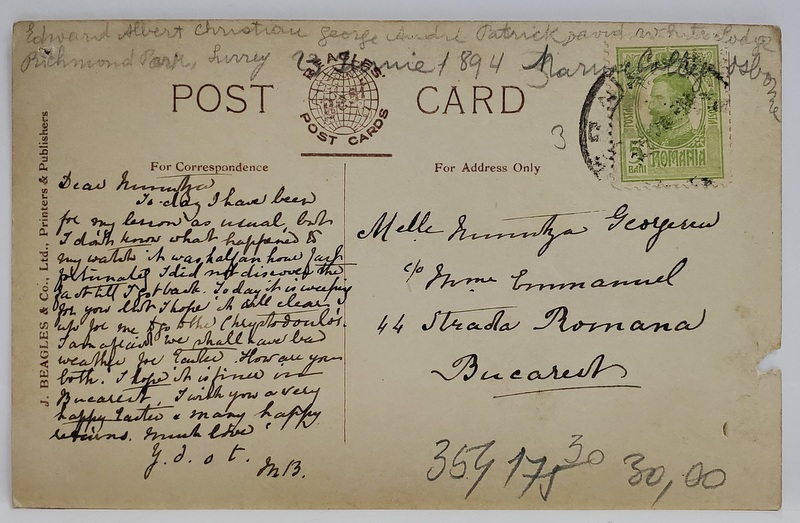 Edward Albert Christian George André Patrick David White Lodge
Richmond Park, Surrey 23 Junie 1894
BEAGLES
POST CARDS
POST CARD
3
POSTA
ROMANIA
5
BANI
J. BEAGLES & Co., Ltd., Printers & Publishers
For Correspondence
For Address Only
Dear
To-day I have been
for my lesson as usual, but
I don't know what happened to
my watch it was half an hour fast
fortunately I did not discover the
fact till I got back. Today it is weeping
for you but I hope it will clear
up for me to the Chrystodoulos.
I am afraid we shall have bad
weather for Easter. How are you
both. I hope it is finer in
Bucarest, I wish you a very
happy Easter & many happy
returns. Much love
Y. d. o t.
MB.
Melle
c/o Mme Emmanuel
44 Strada Romana
Bucarest
30,00